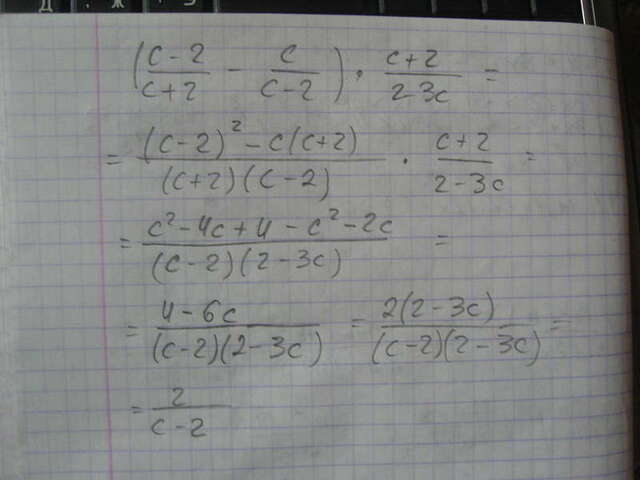 Д Ж Э
(c-2/c+2 - c/c-2) · c+2/2-3c =
= (c-2)² - c(c+2)/(c+2)(c-2) · c+2/2-3c =
= c²-4c+4-c²-2c/(c-2)(2-3c) =
= 4-6c/(c-2)(2-3c) = 2(2-3c)/(c-2)(2-3c) =
= 2/c-2